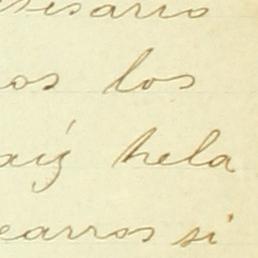 esario
os los
aiz hela
earros si